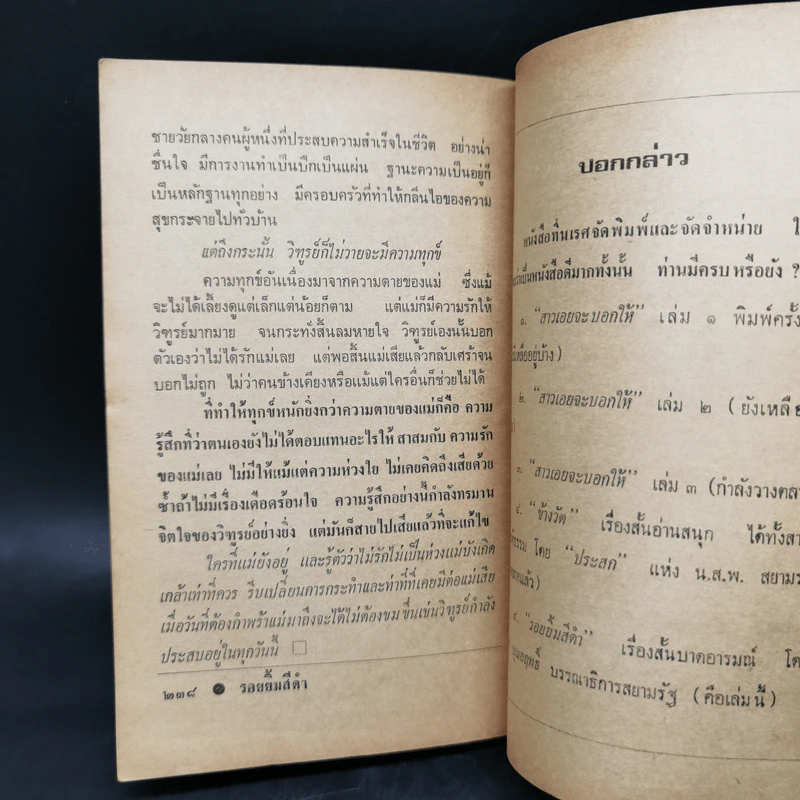 ชายวัยกลางคนผู้หนึ่งที่ประสบความสำเร็จในชีวิต อย่างน่า
ชื่นใจ มีการงานทำเป็นปึกเป็นแผ่น ฐานะความเป็นอยู่ก็
เป็นหลักฐานทุกอย่าง มีครอบครัวที่ทำให้กลิ่นไอของความ
สุขกระจายไปทั่วบ้าน
แต่ถึงกระนั้น วิฑูรย์ก็ไม่วายจะมีความทุกข์
ความทุกข์อันเนื่องมาจากความตายของแม่ ซึ่งแม้
จะไม่ได้เลี้ยงดูแต่เล็กแต่น้อยก็ตาม แต่แม่ก็มีความรักให้
วิฑูรย์มากมาย จนกระทั่งสิ้นลมหายใจ วิฑูรย์เองนั้นบอก
ตัวเองว่าไม่ได้รักแม่เลย แต่พอสิ้นแม่เสียแล้วกลับเศร้าจน
บอกไม่ถูก ไม่ว่าคนข้างเคียงหรือแม้แต่ใครอื่นก็ช่วยไม่ได้
ที่ทำให้ทุกข์หนักยิ่งกว่าความตายของแม่ก็คือ ความ
รู้สึกที่ว่าตนเองยังไม่ได้ตอบแทนอะไรให้ สาสมกับ ความรัก
ของแม่เลย ไม่มีให้แม้แต่ความห่วงใย ไม่เคยคิดถึงเสียด้วย
ซ้ำถ้าไม่มีเรื่องเดือดร้อนใจ ความรู้สึกอย่างนี้กำลังทรมาน
จิตใจของวิฑูรย์อย่างยิ่ง แต่มันก็สายไปเสียแล้วที่จะแก้ไข
ใครที่แม่ยังอยู่ และรู้ตัวว่าไม่รักไม่เป็นห่วงแม่บังเกิด
เกล้าเท่าที่ควร รีบเปลี่ยนการกระทำและท่าทีที่เคยมีต่อแม่เสีย
เมื่อวันที่ต้องกำพร้าแม่มาถึงจะได้ไม่ต้องขมขื่นเช่นวิฑูรย์กำลัง
ประสบอยู่ในทุกวันนี้
๒๓๘ รอยยิ้มสีดำ
บอกกล่าว
หนังสือที่นเรศจัดพิมพ์และจัดจำหน่าย
เป็นหนังสือดีมากทั้งนั้น ท่านมีครบ หรือยัง ?
๑. “สาวเอยจะบอกให้” เล่ม ๑ พิมพ์ครั้ง
อยู่บ้าง)
๒. “สาวเอยจะบอกให้” เล่ม ๒ (ยังเหลือ
๓. “สาวเอยจะบอกให้” เล่ม ๓ (กำลังวางตลา
๔. “ข้างวัด” เรื่องสั้นอ่านสนุก ได้ทั้งสา
โดย “ประสก” แห่ง น.ส.พ. สยามร
แล้ว)
๕. “รอยยิ้มสีดำ” เรื่องสั้นบาดอารมณ์ โด
บรรณาธิการสยามรัฐ (คือเล่มนี้)